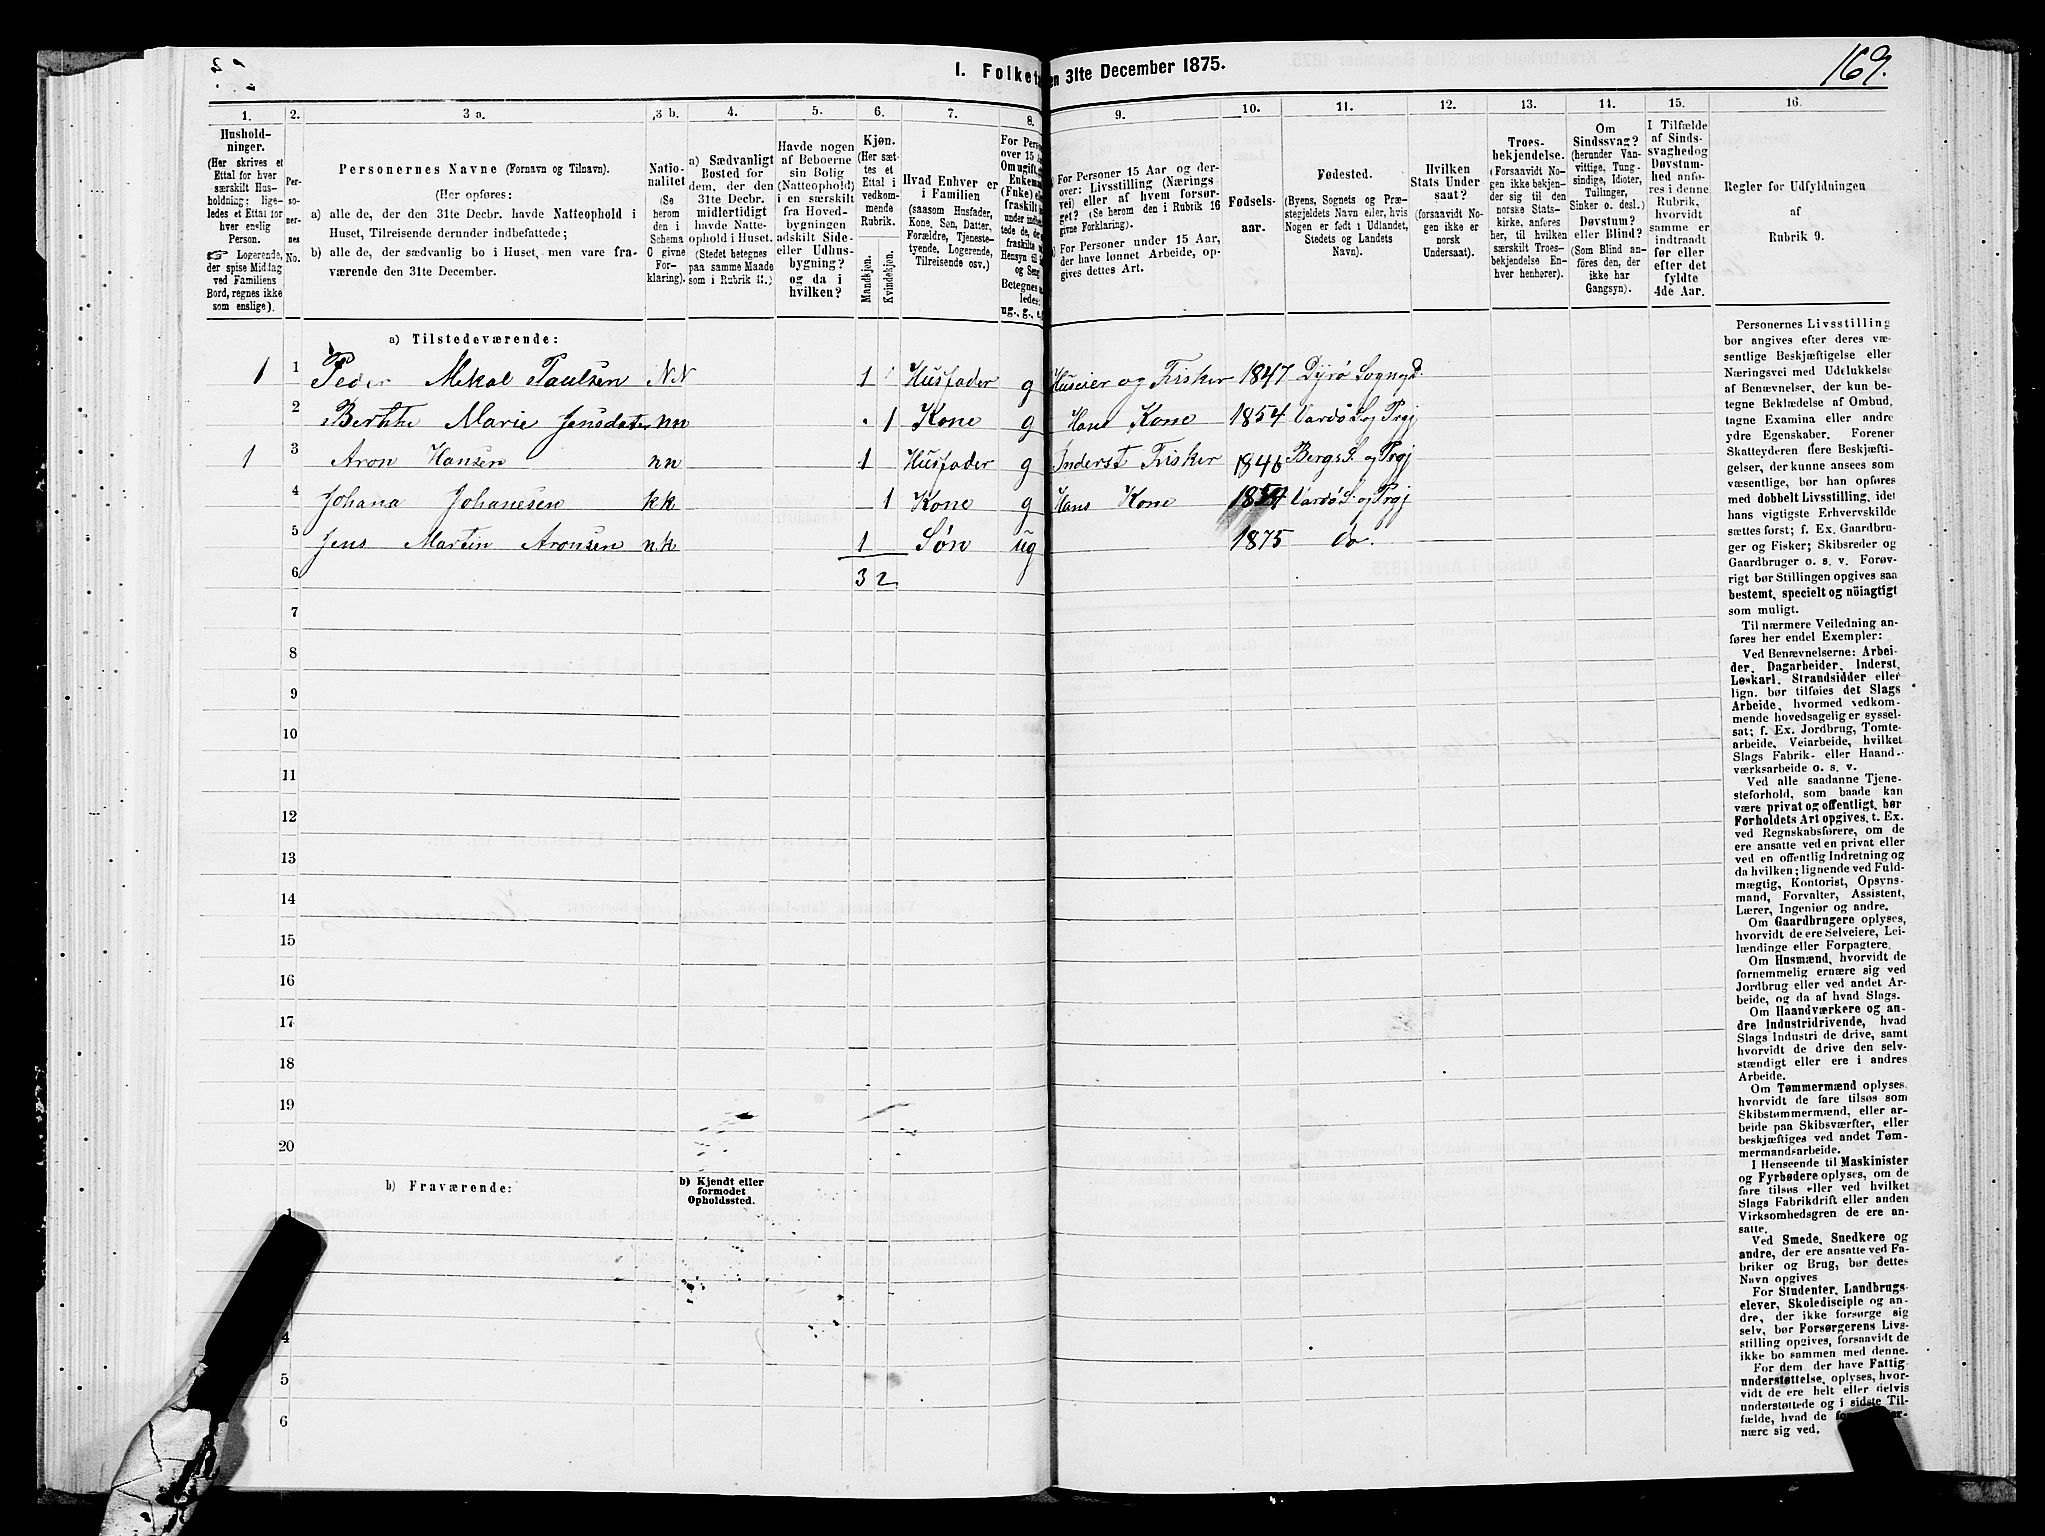 2
I. Folket
en 31te December 1875.
169.
1. 2. 3 a. 3 b. 4. 5. 6. 7. 8. 9. 10. 11. 12. 13. 14. 15. 16.
Hushold-
ninger.
(Her skrives et
Ettal for hver
særskilt Hus-
holdning; lige-
ledes et Ettal for
hver enslig
Person.
☞ Logerende,
der spise Middag
ved Familiens
Bord, regnes ikke
som enslige).
Per-
so-
ner-
nes
No.
Personernes Navne (Fornavn og Tilnavn).
(Her opføres:
a) alle de, der den 31te Decbr. havde Natteophold i
Huset, Tilreisende derunder indbefattede;
b) alle de, der sædvanlig bo i Huset, men vare fra-
værende den 31te December.
Natio-
nalitet
(Se
herom
den i
Schema
C givne
For-
klaring).
a) Sædvanligt
Bosted for
dem, der den
31te Decbr.
midlertidigt
havde Natte-
ophold i Huset.
(Stedet betegnes
paa samme Maade
som i Rubrik 11.)
Havde nogen
af Beboerne
sin Bolig
(Natteophold)
i en særskilt
fra Hoved-
bygningen
adskilt Side-
eller Udhus-
bygning?
og da i
hvilken?
Kjøn.
(Her sæt-
tes et
Ettal i
vedkom-
mende
Rubrik.
Mandkjøn.
Kvindekjøn.
Hvad Enhver er
i Familien
(saasom Husfader,
Kone, Søn, Datter,
Forældre, Tjeneste-
tyende, Logerende,
Tilreisende osv.)
For Perso
over 15
Om ugift,
Enkem
(Fnke) el
fraskilt
under ind
tede de,
fraskilte
Hensyn til
og Seng
Betegnes
ledes:
ug., g.,
a) For Personer 15 Aar og der-
over: Livsstilling (Nærings
vei) eller af hvem forsør-
get? (Se herom den i Rubrik 16
givne Forklaring).
b) For Personer under 15 Aar,
der have lønnet Arbeide, op-
gives dettes Art.
Fødsels-
aar.
Fødested.
(Byens, Sognets og Præ-
stegjeldets Navn eller, hvis
Nogen er født i Udlandet,
Stedets og Landets
Navn).
Hvilken
Stats Under
saat?
(forsaavidt No-
gen ikke er
norsk
Undersaat).
Troes-
bekjendelse.
(Forsaavidt No-
gen ikke bekjen-
der sig til den
norske Stats-
kirke, anføres
her, til hvilken
særskilt Troes-
bekjendelse En-
hver henhører).
Om
Sindssvag?
(herunder Van-
vittige, Tung-
sindige, Idioter,
Tullinger,
Sinker o. desl.)
Døvstum?
eller Blind?
(Som Blind an-
føres den, der
ikke har
Gangsyn).
I Tilfælde
af Sinds-
svaghedog
Døvstum-
hed anfø-
res i denne
Rubrik,
hvorvidt
samme er
indtraadt
før eller
efter det
fyldte
4de Aar.
Regler for Udfyldningen
af
Rubrik 9.
a) Tilstedeværende:
1 1 Peder Mekal Paulsen NN 1 Husfader g Huseier og Fisker 1847 Dyrø Sogn
2 Berthe Marie Jensdater nn 1 Kone g Hans Kone 1854 Vardø S. og Prgj
1 3 Aron Hansen nn 1 Husfader g Inderst Fisker 1846 Bergs S. og Prgj
4 Johana Johanesen kk 1 Kone g Hans Kone 1854 Vardø S. og Prgj
5 Jens Martin Aronsen nk 1 Søn ug 1875 do.
6 3 2
7
8
9
10
11
12
13
14
15
16
17
18
19
20
b) Fraværende:
b) Kjendt eller
formodet
Opholdssted.
1
4
5
6
Personernes Livsstilling
bør angives efter deres væ-
sentlige Beskjæftigelse eller
Næringsvei med Udelukkelse
af Benævnelser, der kun be-
tegne Beklædelse af Ombud,
tagne Examina eller andre
ydre Egenskaber. Forener
Skatteyderen flere Beskjæfti-
gelser, der kunne ansees som
væsentlige, bør han opføres
med dobbelt Livsstilling, idet
hans vigtigste Erhvervskilde
sættes først; f. Ex. Gaardbru-
ger og Fisker; Skibsreder og
Gaardbruger o. s. v. Forøv-
rigt bør Stillingen opgives saa
bestemt, specielt og nöiagtigt
som muligt.
Til nærmere Veiledning an-
føres her endel Exempler:
Ved Benævnelserne: Arbei-
der, Dagarbeider, Inderst,
Løskarl, Strandsidder eller
lign. bør tilføies det Slags
Arbeide, hvormed vedkom-
mende hovedsagelig er syssel-
sat; f. Ex. Jordbrug, Tomte-
arbeide, Veiarbeide, hvilket
Slags Fabrik- eller Haand-
værksarbeide o. s. v.
Ved alle saadanne Tjene-
steforhold, som baade kan
være privat og offentligt, bør
Forholdets Art opgives, t. Ex.
ved Regnskabsførere, om de
ere ansatte ved en privat eller
ved en offentlig Indretning og
da hvilken; lignende ved Fuld-
mægtig, Kontorist, Opsyns-
mand, Forvalter, Assistent,
Lærer, Ingeniør og andre.
Om Gaardbrugere oplyses,
hvorvidt de ere Selveiere, Lei-
lændinge eller Forpagtere.
Om Husmænd, hvorvidt de
fornemmelig ernære sig ved
Jordbrug eller ved andet Ar-
beide, og da af hvad Slags.
Om Haandværkere og an-
dre Industridrivende, hvad
Slags Industri de drive, samt
hvorvidt de drive den selv-
stændigt eller ere i andres
Arbeide.
Om Tømmermænd oplyses,
hvorvidt de fare tilsøs som
Skibstømmermænd, eller ar-
beide paa Skibsværfter, eller
beskjæftiges ved andet Tøm-
mermandsarbeide.
I Henseende til Maskinister
og Fyrbødere oplyses, om de
fare tilsøs eller ved hvilket
Slags Fabrikdrift eller anden
Virksomhedsgren de ere an-
satte.
Ved Smede, Snedkere og
andre, der ere ansatte ved Fa-
briker og Brug, bør dettes
Navn opgives
For Studenter, Landbrugs-
elever, Skoledisciple og an-
dre, der ikke forsørge sig
selv, bør Forsørgerens Livs-
stilling opgives, forsaavidt de
ikke bo sammen med denne.
For dem der have Fattig-
understøttelse, oplyses, hvor-
vidt de ere helt eller delvis
understøttede og i sidste Til-
fælde, hvad de
nære sig ved.